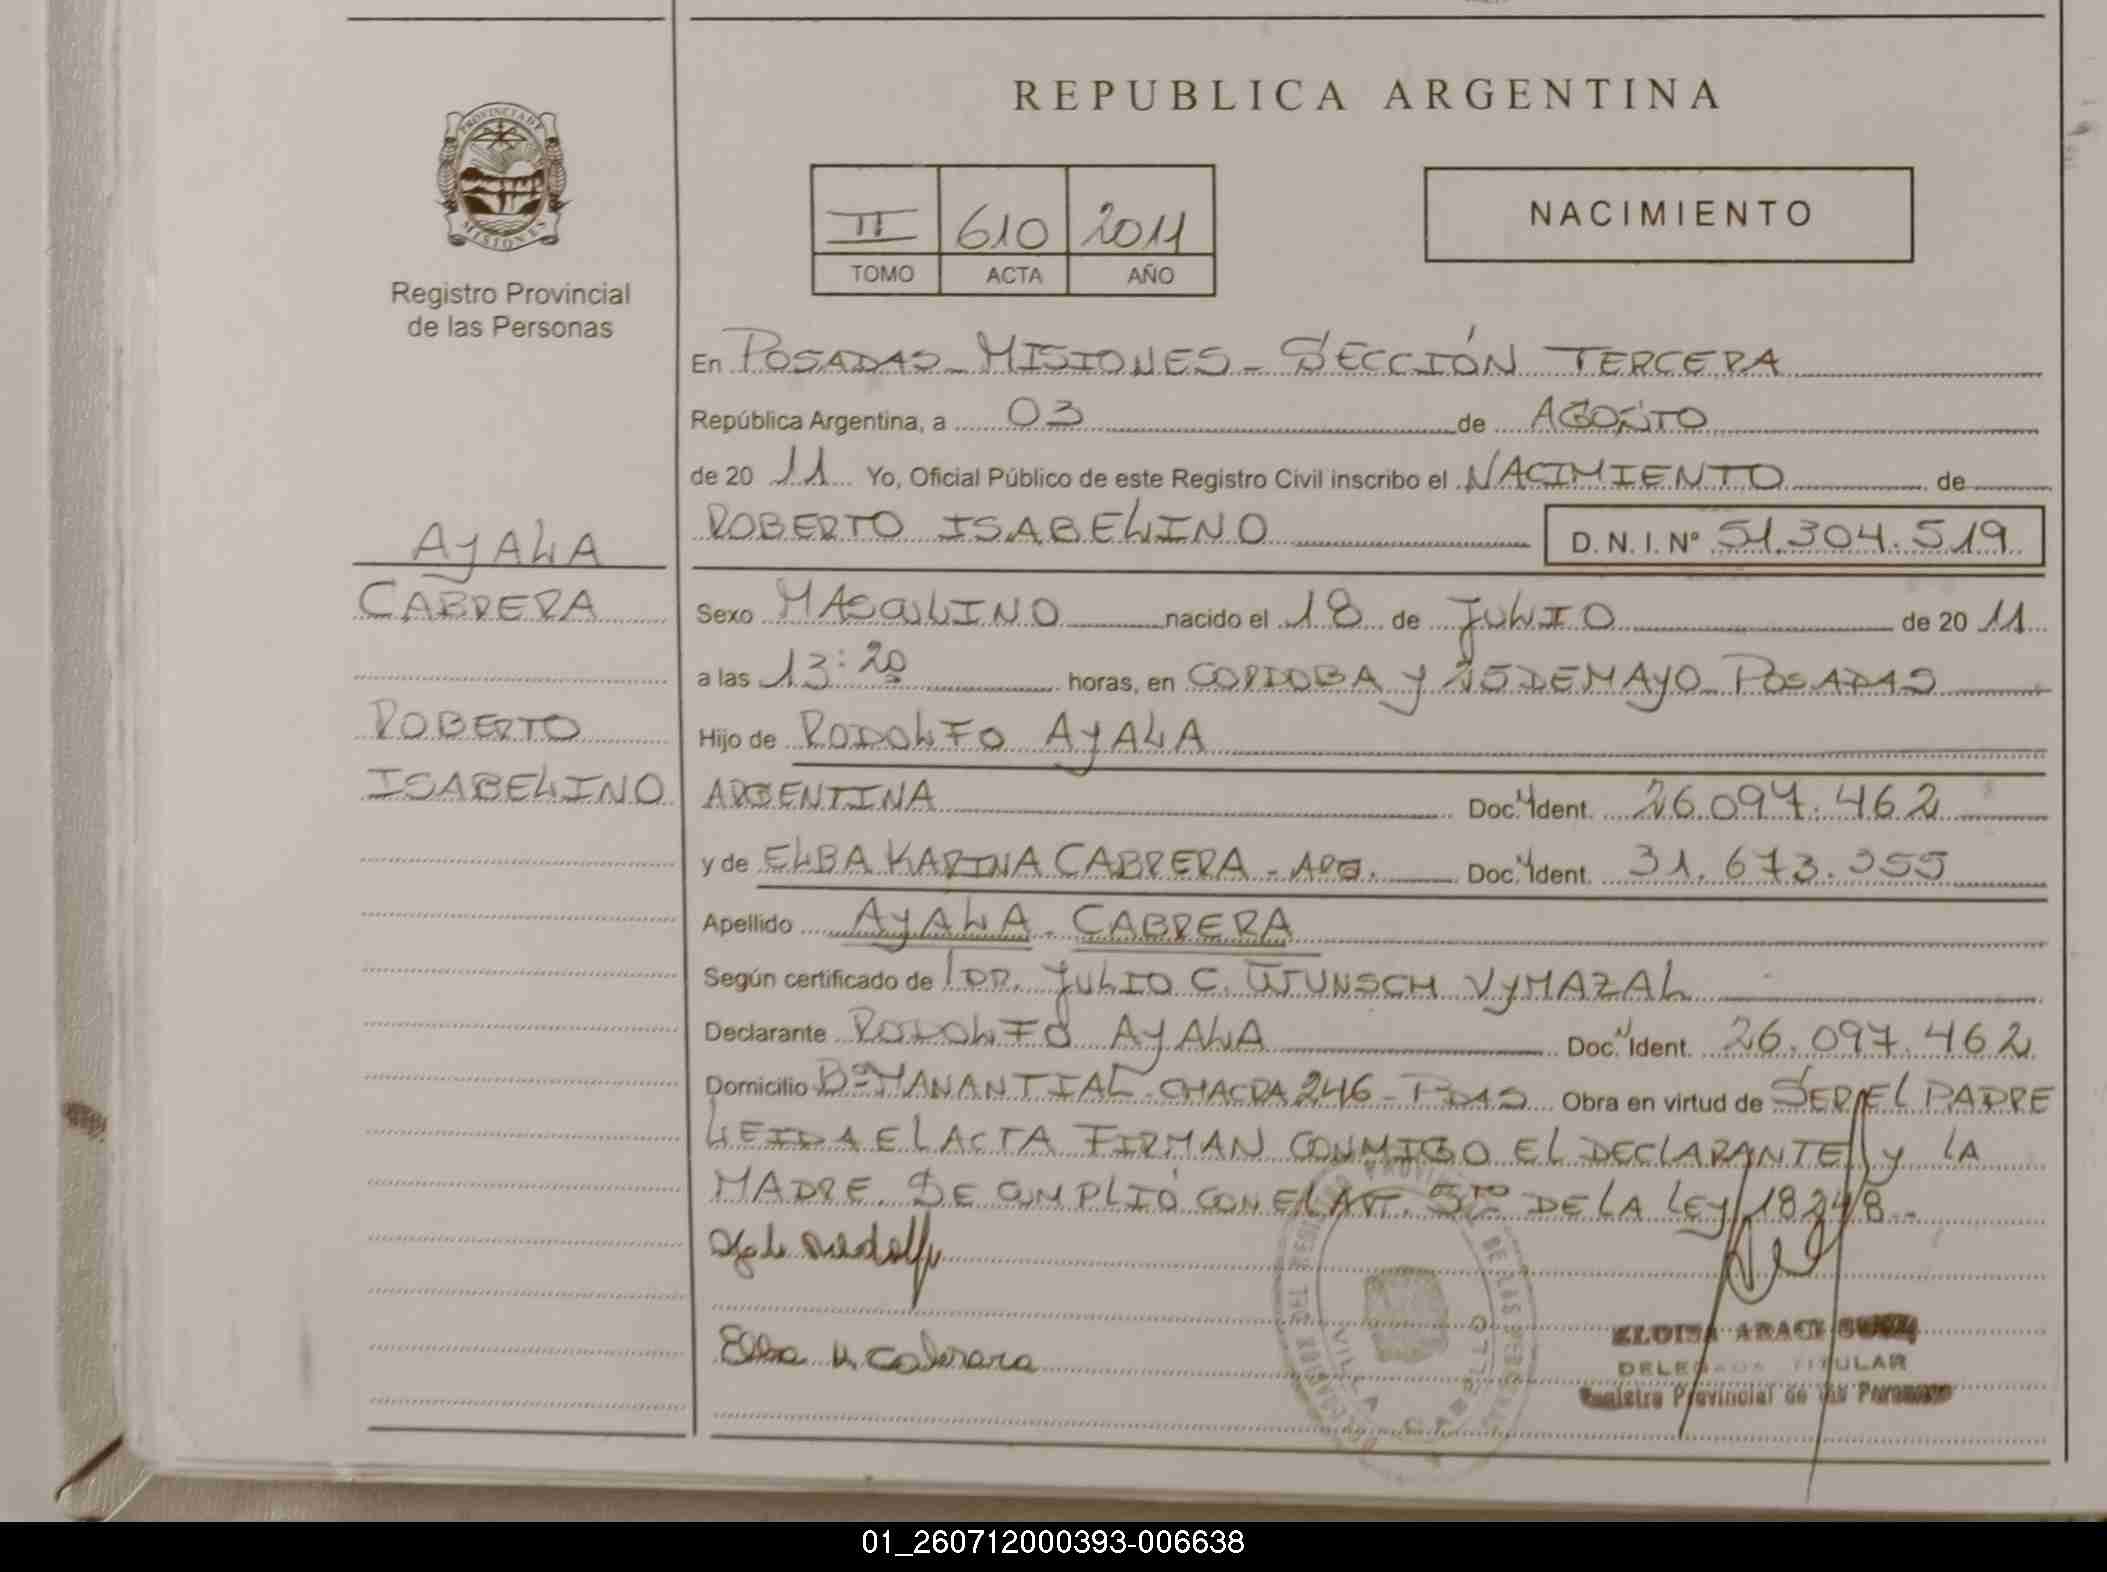 REPUBLICA ARGENTINA
PROVINCIA DE
MISIONES
Registro Provincial
de las Personas
II 610 2011
TOMO ACTA AÑO
NACIMIENTO
En POSADAS - MISIONES - SECCIÓN TERCERA
República Argentina, a 03 de AGOSTO
de 20 11 Yo, Oficial Público de este Registro Civil inscribo el NACIMIENTO de
ROBERTO ISABELINO D. N. I. Nº 51.304.519
AYALA
CABRERA
ROBERTO
ISABELINO
Sexo MASCULINO nacido el 18 de JULIO de 20 11
a las 13:20 horas, en CORDOBA Y 25 DE MAYO POSADAS
Hijo de RODOLFO AYALA
ARGENTINA Doc. Ident. 26.097.462
y de ELBA KARINA CABRERA - ARG. Doc. Ident. 31.673.355
Apellido AYALA - CABRERA
Según certificado de DR. JULIO C. WUNSCH VYMAZAL
Declarante RODOLFO AYALA Doc. Ident. 26.097.462
Domicilio Bº MANANTIAL - CHACRA 246 - PDAS Obra en virtud de SER EL PADRE
LEIDA EL ACTA FIRMAN CONMIGO EL DECLARANTE Y LA
MADRE. SE CUMPLIÓ CON EL ART. 5TO DE LA LEY 18248 -
Elba K. Cabrera
VILLA CABELLO
DELEGADA TITULAR
Registro Provincial de las Personas
01_260712000393-006638